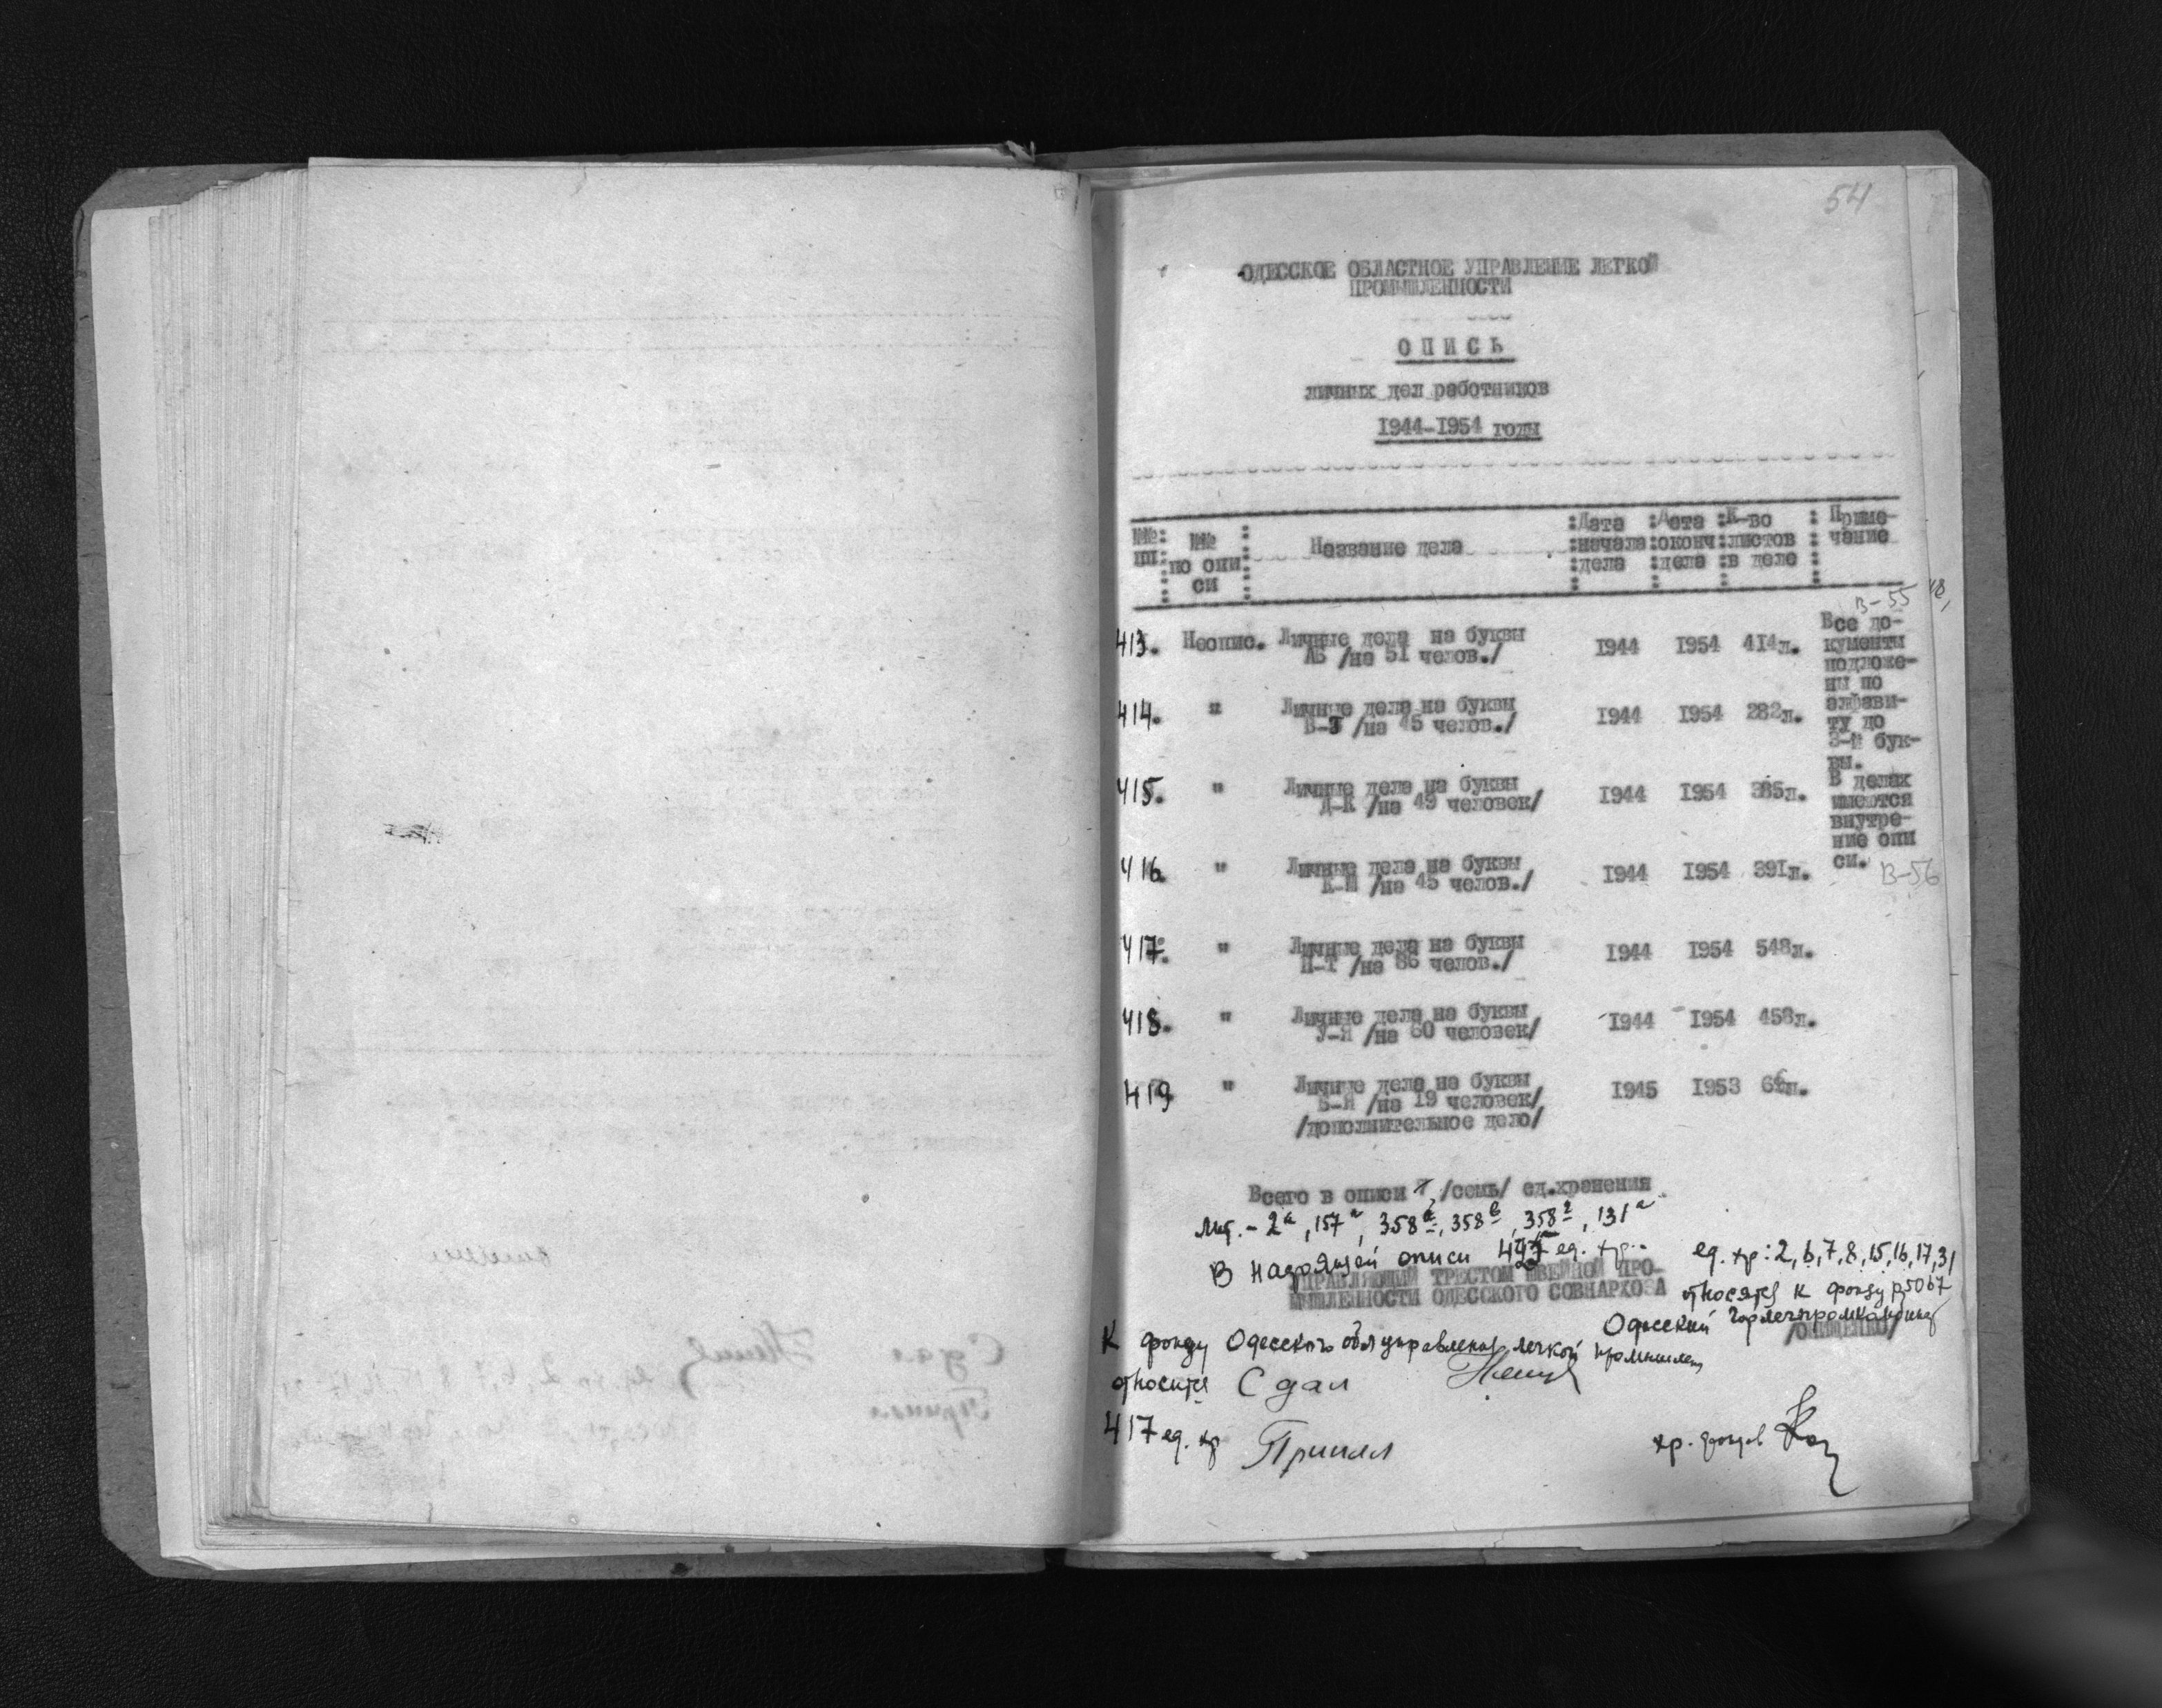 54
ОДЕССКОЕ ОБЛАСТНОЕ УПРАВЛЕНИЕ ЛЕГКОЙ
ПРОМЫШЛЕННОСТИ
ОПИСЬ
личных дел работников
1944-1954 годы
№№ пп: №№ по опи си : Название дела :Дата начала дела :Дата оконч дела :К-во листов в деле : Приме- чание
В-55
413. Неопис. Личные дела на буквы
АБ /на 51 челов./ 1944 1954 414л.
Все до-
кументы
подложе-
ны по
алфави-
ту до
3-й бук-
вы.
В делах
имеются
внутре-
ние опи
си.
В-56
414. " Личные дела на буквы
/на 45 челов./ 1944 1954 282л.
415. " Личные дела на буквы
Д-К /на 49 человек/ 1944 1954 385л.
416 " Личные дела на буквы
/на 45 челов./ 1944 1954 391л.
417. " Личные дела на буквы
/на 86 челов./ 1944 1954 548л.
418. " Личные дела на буквы
У-Я /на 60 человек/ 1944 1954 458л.
419 " Личные дела на буквы
/на 19 человек/ 1945 1953
/дополнительное дело/
Всего в описи 7 /семь/ ед.хранения
Лит. - 2а, 157а, 358б, 358в, 358г, 131а
В настоящей описи ед. хр.
УПРАВЛЯЮЩИЙ ТРЕСТОМ ШВЕЙНОЙ ПРО-
МЫШЛЕННОСТИ ОДЕССКОГО СОВНАРХОЗА
ед. хр: 2, 6, 7, 8, 15, 16, 17, 31
относятся к фонду Р5067
Одесский
К фонду Одесского облуправления легкой
относится Сдал
417 ед. хр Принял
хр. фондов